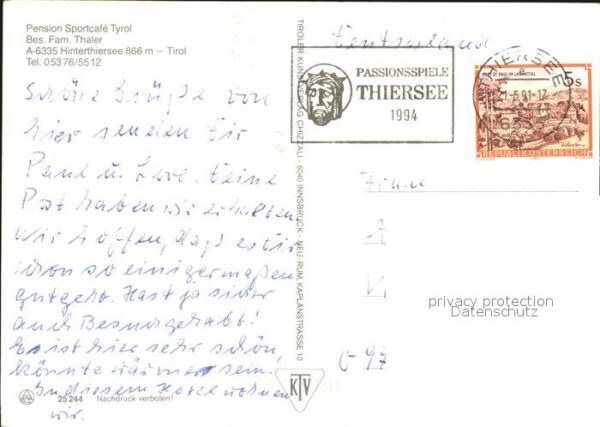 Pension Sportcafé Tyrol
Bes. Fam. Thaler
A-6335 Hinterthiersee 866 m – Tirol
Tel. 05376/5512
Schöne Grüße von
hier senden Dir
Paul u. Deine
Post haben wir erhalten.
Wir hoffen, daß es Dir
schon so einigermaßen
gutgeht. Hast ja sicher
auch Besuch gehabt!
Es ist hier sehr schön,
könnte wärmer sein.
In diesem Hotel wohnen
wir.
25 244 Nachdruck verboten!
TIROLER KUNSTVERLAG CHIZZALI · 6040 INNSBRUCK - NEU-RUM, KAPLANSTRASSE 10
KTV
Deutschland
PASSIONSSPIELE
THIERSEE
1994
THIERSEE
ST. PAUL IM LAVANTTAL
5s
REPUBLIK ÖSTERREICH
Frau
privacy protection
Datenschutz